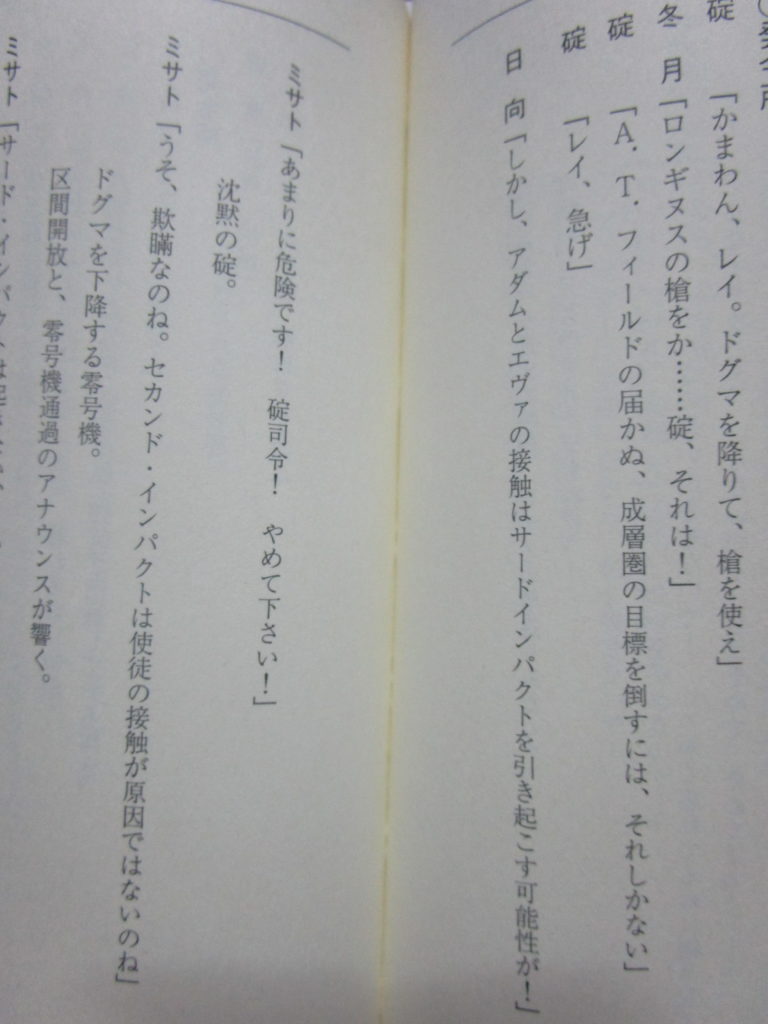 発令所
碇「かまわん、レイ。ドグマを降りて、槍を使え」
冬月「ロンギヌスの槍をか……碇、それは！」
碇「A．T．フィールドの届かぬ、成層圏の目標を倒すには、それしかない」
碇「レイ、急げ」
日向「しかし、アダムとエヴァの接触はサードインパクトを引き起こす可能性が！」
ミサト「あまりに危険です！　碇司令！　やめて下さい！」
沈黙の碇。
ミサト「うそ、欺瞞なのね。セカンド・インパクトは使徒の接触が原因ではないのね」
ドグマを下降する零号機。
区間開放と、零号機通過のアナウンスが響く。
ミサト「サード・インパクトは